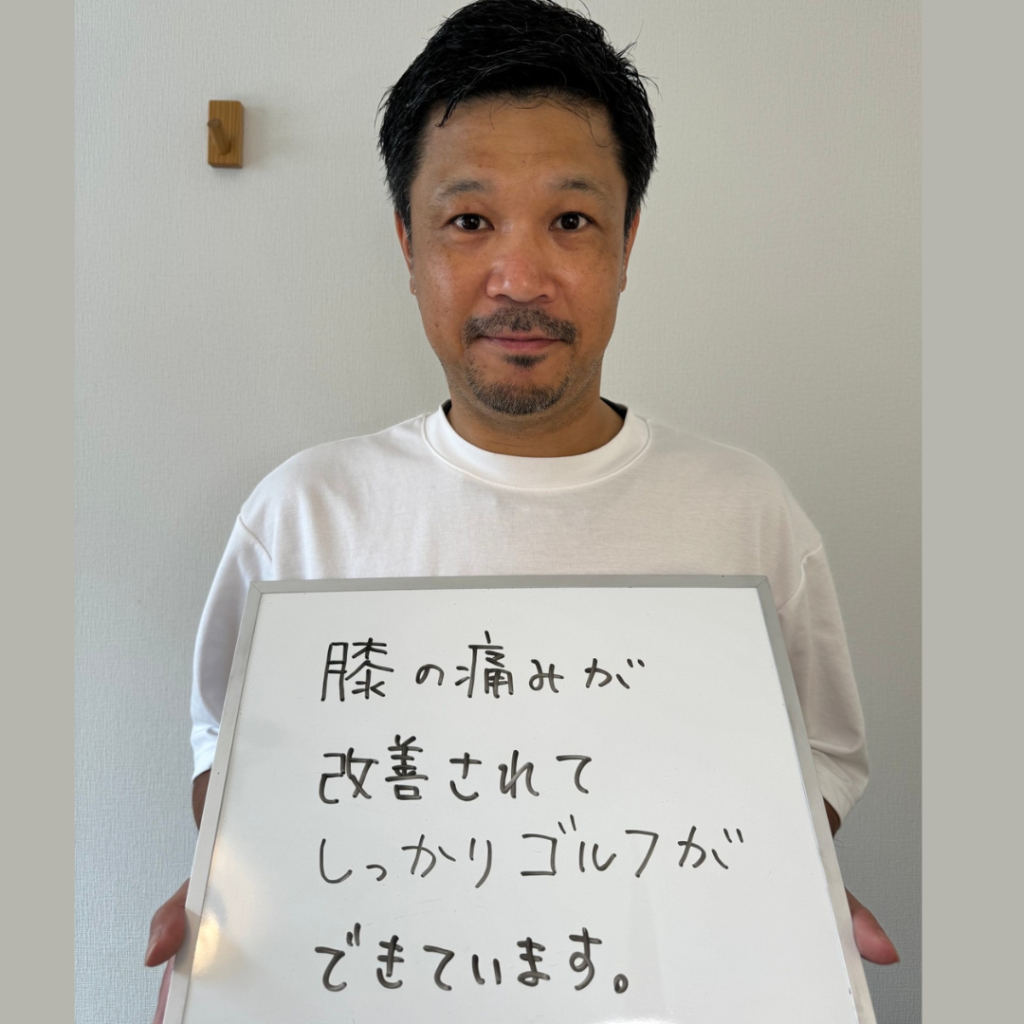 膝の痛みが
改善されて
しっかりゴルフが
できています。